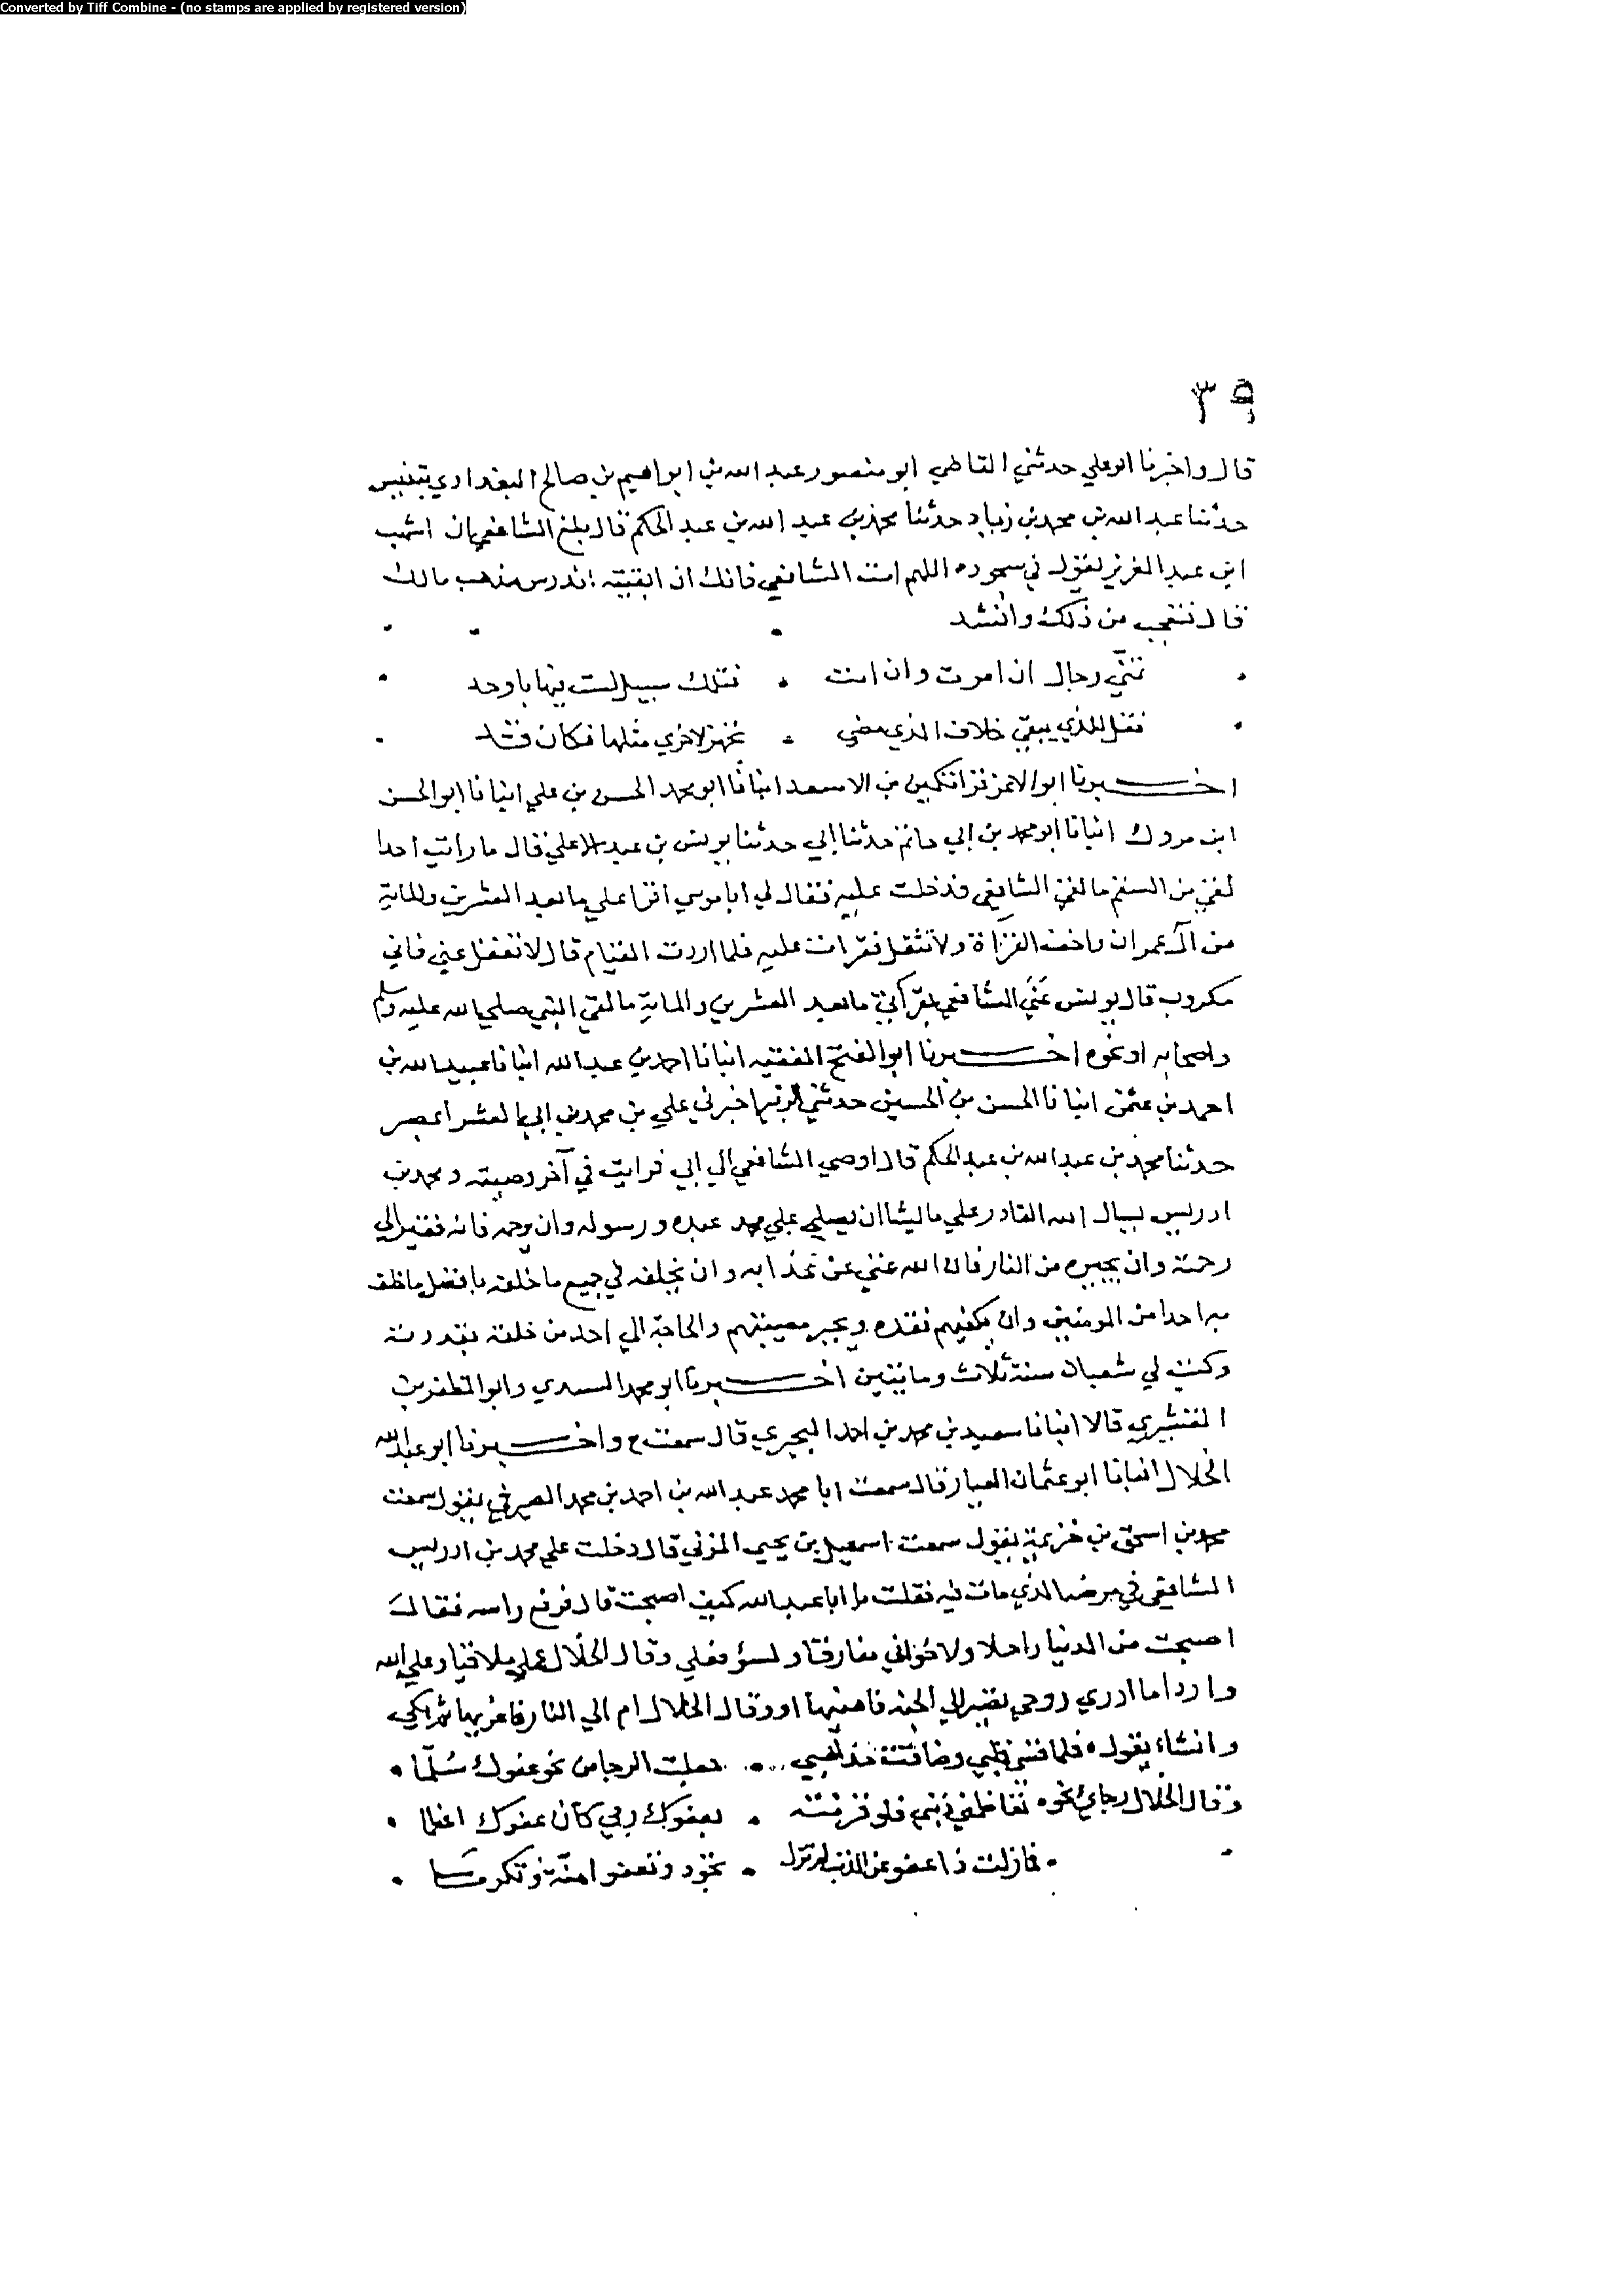 Converted by Tiff Combine - (no stamps are applied by registered version)
٣٩
قال واخبرنا ابو علي حدثني القاضي ابو منصور عبد الله بن ابراهيم بن صالح البغدادي بتنيس
حدثنا عبد الله بن محمد بن زياد حدثنا محمد بن عبد الله بن عبد الحكم قال بلغ الشافعي ان اشهب
ابن عبد العزيز يقول في سجوده اللهم امت الشافعي فانك ان ابقيته اندرس مذهب مالك
قال فتعجب من ذلك وانشد
تمنّي رجال ان اموت وان امت فتلك سبيل لست فيها باوحد
فقل للذي يبقي خلاف الذي مضي تجهز لاخري مثلها فكان قد
اخبرنا ابو الاعز قراتكين بن الاسعد انبانا ابو محمد الحسن بن علي انبانا ابو الحسن
ابن مردك انبانا ابو محمد بن ابي حاتم حدثنا ابي حدثنا يونس بن عبد الاعلي قال ما رايت احدا
لقي من السقم ما لقي الشافعي فدخلت عليه فقال لي ابا موسي اقرا علي ما بعد العشرين والماية
من آل عمران واخف القراة ولا تثقل فقرات عليه فلما اردت القيام قال لا تغفل عني فاني
مكروب قال يونس عَنَي الشافعي بقرآتي ما بعد العشرين والماية ما لقي النبي صلي الله عليه وسلم
واصحابه او نحوه اخبرنا ابو الفتح الفقيه انبانا احمد بن عبد الله انبانا عبيد الله بن
احمد بن عثمن انبانا الحسن بن الحسين حدثني الزبير اخبرني علي بن محمد بن ابي بمصر
حدثنا محمد بن عبد الله بن عبد الحكم قال اوصي الشافعي الي ابي فرايت في آخر وصيته ومحمد بن
ادريس يسال الله القادر علي ما يشا ان يصلي علي محمد عبده ورسوله وان يرحمه فانه فقير الي
رحمته وان يجيره من النار فان الله غني عن عذابه وان يخلفه في جميع ما خلفه بافضل ما خلف
به احدا من المومنين وان يكفيهم فقده ويجبر مصيبتهم والحاجة الي احد من خلقه بقدرته
وكتب في شعبان سنة ثلاث ومايتين اخبرنا ابو محمد السدي وابو المظفر بن
القشيري قالا انبانا سعيد بن محمد بن احمد البحيري قال سمعت ح واخبرنا ابو عبد الله
الخلال انبانا ابو عثمان العيار قال سمعت ابا محمد عبد الله بن احمد بن محمد الصيرفي يقول سمعت
محمد بن اسحق بن خزيمة يقول سمعت اسمعيل بن يحيي المزني قال دخلت علي محمد بن ادريس
الشافعي في مرضه الذي مات فيه فقلت يا ابا عبد الله كيف اصبحت قال فرفع راسه فقال
اصبحت من الدنيا راحلا ولاخواني مفارقا ولسؤ فعلي وقال الخلال عملي ملاقيا وعلي الله
واردا ما ادري روحي تصير الي الجنه فاهنيها او وقال الخلال ام الي النار فاعزيها ثم بكي
وانشاء يقول فلما قسي قلبي وضاقت مذاهبي جعلت الرجا من نحو عفوك سُلّما
وقال الخلال رجائي نحو تعاظمني ذنبي فلو قرنته بعفوك ربي كان عفوك اعظما
فمازلت ذا عفو عن الذنب لم تزل تجود وتعفو امنة وتكرما